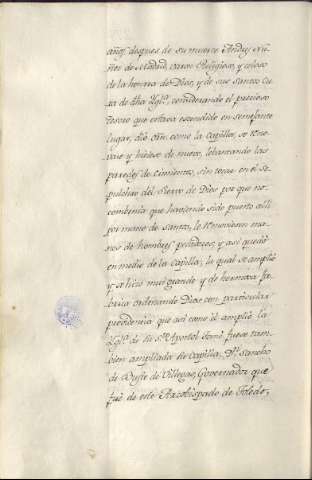 años despues de su muerte Andres Nu-
ñez de Madrid, varon Religioso, y celoso
de la honrra de Dios, y de sus santos Cu-
ra de dha Ygla, considerando el precioso
tesoro que estava escondido en semejante
lugar, dio orn. como la Capilla, se reno-
vase y hiciese de nuevo, lebantando las
paredes de cimientos, sin tocar en el se-
pulchro del Siervo de Dios por que no
combenia que haviendo sido puerto alli
por mano de Santos, le removieran ma-
nos de hombres pecadores, y asi quedó
en medio de la Capilla, la qual se amplió
y se hizo mui grande y de hermosa fa-
brica ordenando Dios con particular
providencia que asi como se amplió la
Ygla. de su Sto. Apostol fuese tam-
bien ampliada su Capilla. Dn. Sancho
de Busto de Villegas, Governador que
fué de este Arzobispado de Toledo,